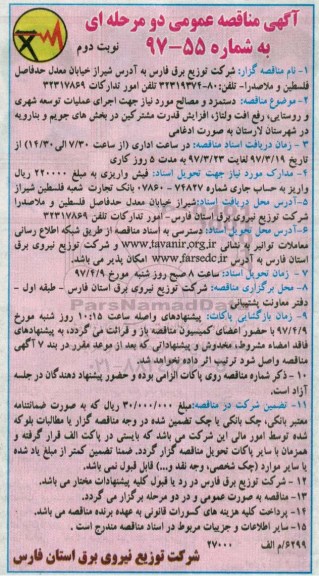 آگهی مناقصه عمومی دو مرحله ای
به شماره ۵۵-۹۷
نوبت دوم
۱- نام مناقصه گزار: شرکت توزیع برق فارس به آدرس شیراز خیابان معدل حدفاصل
فلسطین و ملاصدرا- تلفن:۸۰-۳۲۳۱۹۳۷۴ تلفن امور تدارکات ۳۲۳۱۷۸۶۹
۲- موضوع مناقصه: دستمزد و مصالح مورد نیاز جهت اجرای عملیات توسعه شهری
و روستایی، رفع افت ولتاژ، افزایش قدرت مشترکین در بخش های جویم و بنارویه
در شهرستان لارستان به صورت ادغامی
۳ - زمان دریافت اسناد مناقصه: در ساعت اداری (از ساعت ۷/۳۰ الی ۱۴/۳۰) از
تاریخ ۹۷/۳/۱۹ لغایت ۹۷/۳/۲۳ به مدت ۵ روز کاری
۴ - مدارک مورد نیاز جهت تحویل اسناد: فیش واریزی به مبلغ ۲۲۰۰۰۰ ریال
واریز به حساب جاری شماره ۷۴۸۲۷-۰۷۸۶۰ بانک تجارت شعبه فلسطین شیراز
۵- آدرس محل دریافت اسناد:شیراز خیابان معدل حدفاصل فلسطین و ملاصدرا
شرکت توزیع نیروی برق استان فارس- امور تدارکات تلفن ۳۲۳۱۷۸۶۹
۶- آدرس محل تحویل اسناد: دسترسی به اسناد مناقصه از طریق شبکه اطلاع رسانی
معاملات توانیر به نشانی www.tavanir.org.ir و شرکت توزیع نیروی برق
استان فارس به آدرس www.farsedc.ir امکان پذیر می باشد.
۷ - زمان تحویل اسناد: ساعت ۸ صبح روز شنبه مورخ ۹۷/۴/۹
۸- محل برگزاری مناقصه: شرکت توزیع نیروی برق استان فارس - طبقه اول -
دفتر معاونت پشتیبانی
۹- زمان بازگشایی پاکات: پیشنهادهای واصله ساعت ۱۰:۱۵ روز شنبه مورخ
۹۷/۴/۹ با حضور اعضای کمیسیون مناقصه باز و قرائت می گردد، به پیشنهادهای
فاقد امضاء مشروط، مخدوش و پیشنهاداتی که بعد از موعد مقرر در بند ۷ آگهی
مناقصه واصل شود ترتیب اثر داده نخواهد شد.
۱۰ - ذکر شماره مناقصه روی پاکات الزامی بوده و حضور پیشنهاد دهندگان در جلسه
آزاد است.
۱۱- تضمین شرکت در مناقصه:مبلغ ۳۰/۰۰۰/۰۰۰ ریال که به صورت ضمانتنامه
معتبر بانکی، چک بانکی یا چک تضمین شده در وجه مناقصه گزار یا مطالبات بلوکه
شده توسط امور مالی این شرکت می باشد که بایستی در پاکت الف قرار گرفته و
همزمان با سایر پاکات تحویل مناقصه گزار گردد. ضمنا تضمین کمتر از مبلغ یاد شده
یا سایر موارد (چک شخصی، وجه نقد و...) قابل قبول نمی باشد.
۱۲ - شرکت توزیع برق فارس در رد یا قبول کلیه پیشنهادات مختار می باشد.
۱۳- مناقصه به صورت عمومی و در دو مرحله برگزار می گردد.
۱۴- پرداخت کلیه هزینه های کسورات قانونی به عهده برنده مناقصه می باشد.
۱۵- سایر اطلاعات و جزییات مربوط در اسناد مناقصه مندرج است .
۶۲۹۹/م الف ۲۷۰۰۰
شرکت توزیع نیروی برق استان فارس